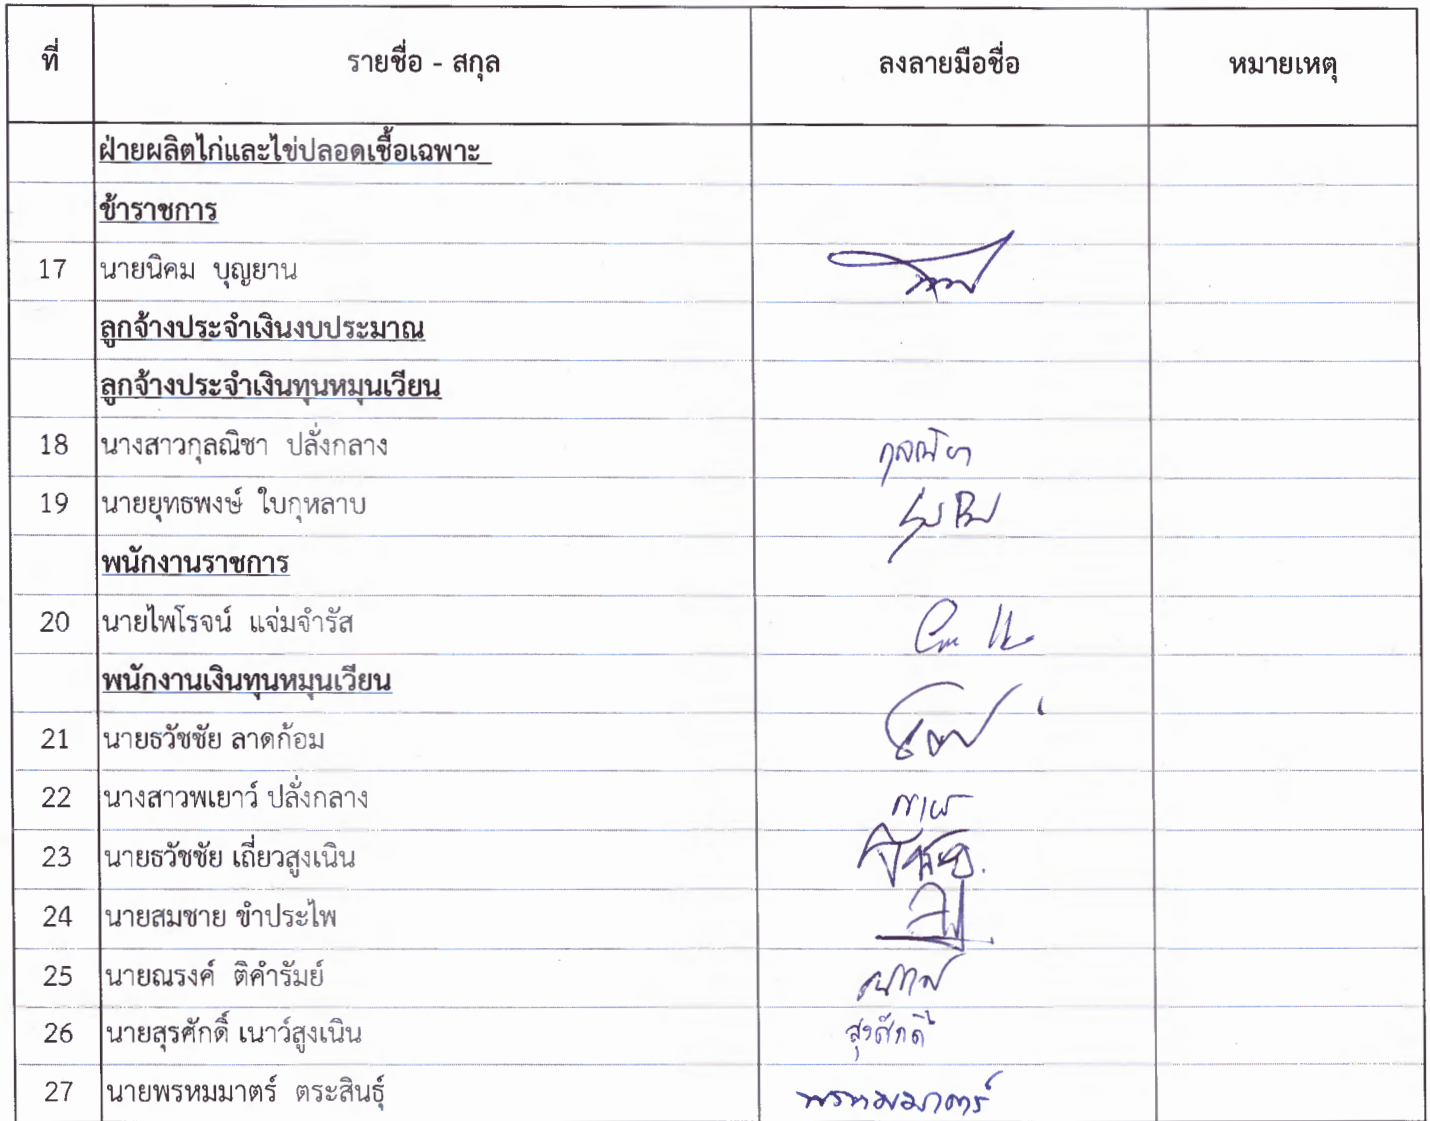 ที่ รายชื่อ - สกุล ลงลายมือชื่อ หมายเหตุ
ฝ่ายผลิตไก่และไข่ปลอดเชื้อเฉพาะ
ข้าราชการ
17 นายนิคม บุญยาน
ลูกจ้างประจำเงินงบประมาณ
ลูกจ้างประจำเงินทุนหมุนเวียน
18 นางสาวกุลณิชา ปลั่งกลาง กุลณิชา
19 นายยุทธพงษ์ ใบกุหลาบ
พนักงานราชการ
20 นายไพโรจน์ แจ่มจำรัส
พนักงานเงินทุนหมุนเวียน
21 นายธวัชชัย ลาดก้อม
22 นางสาวพเยาว์ ปลั่งกลาง
23 นายธวัชชัย เถี่ยวสูงเนิน
24 นายสมชาย ขำประไพ
25 นายณรงค์ ติคำรัมย์
26 นายสุรศักดิ์ เนาว์สูงเนิน สุรศักดิ์
27 นายพรหมมาตร์ ตระสินธุ์ พรหมมาตร์